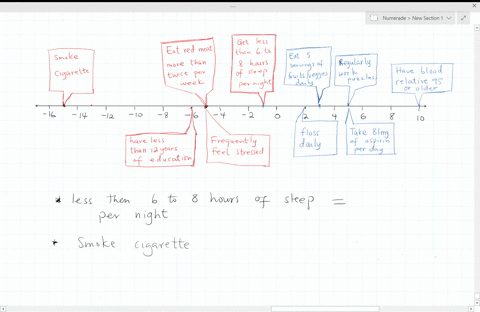 Numerade > New Section 1
Smoke
Cigarette
Eat red meat
more than
twice per
week
Get less
than 6 to
8 hours
of sleep
per night
Eat 5
servings of
fruits/veggies
daily
Regularly
work
puzzles
Have blood
relative 95
or older
-16 -14 -12 -10 -8 -6 -4 -2 0 2 4 6 8 10
have less
than 12 years
of education
Frequently
feel stressed
floss
daily
Take 81mg
of aspirin
per day
* less then 6 to 8 hours of sleep =
per night
* Smoke cigarette